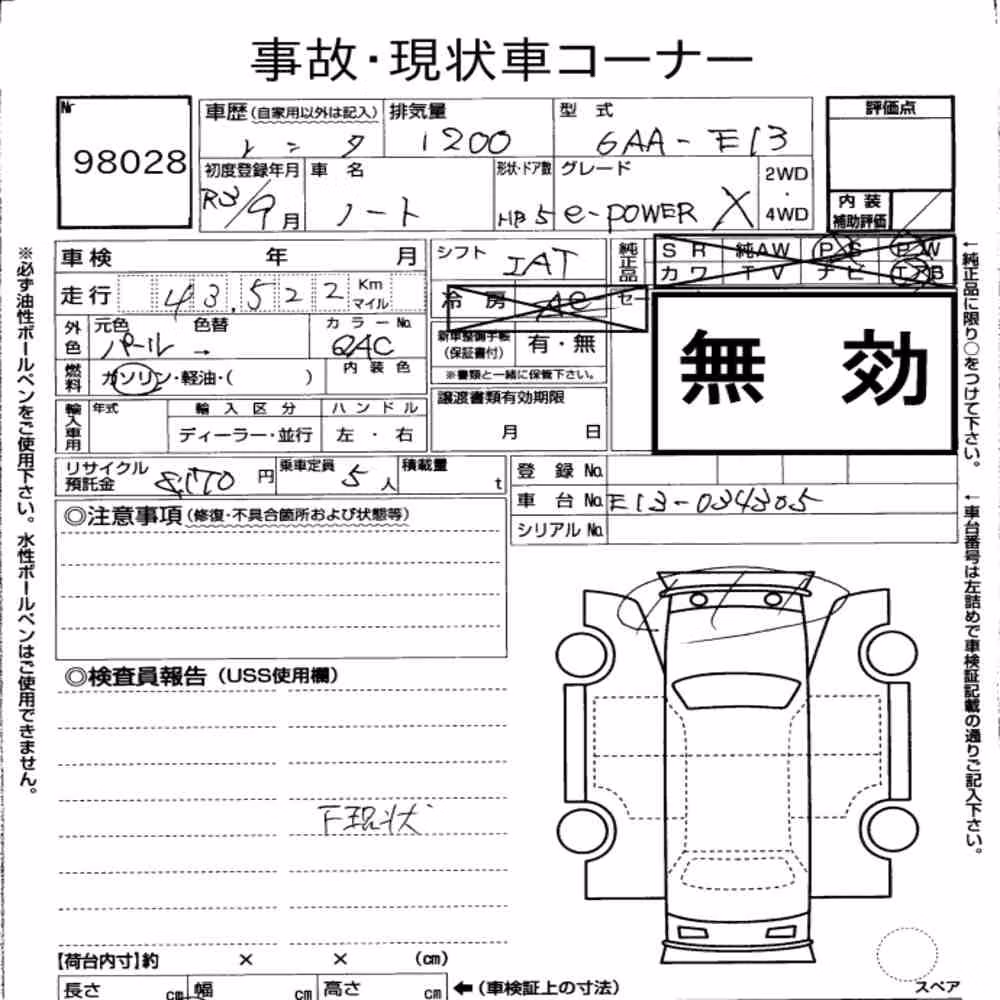 事故・現状車コーナー
Nr
98028
車歴(自家用以外は記入)
レンタ
排気量
1200
型 式
6AA-E13
評価点
初度登録年月
R3/9月
車 名
ノート
形状・ドア数
HB 5
グレード
e-POWER X
2WD
・
4WD
内 装
補助評価
※必ず油性ボールペンをご使用下さい。水性ボールペンはご使用できません。
車検 年 月
走行 43,522 Km
マイル
外色 元色 色替
パール →
カラーNo.
QAC
燃料 ガソリン・軽油・( )
内 装 色
輸入車用 年式 輸 入 区 分 ハ ン ド ル
ディーラー・並行 左 ・ 右
シフト
IAT
冷 房 AC
新車整備手帳
(保証書付) 有・無
※書類と一緒に保管下さい。
譲渡書類有効期限
月 日
純正品 S R 純AW P S P W
カ ワ T V ナ ビ エアB
セー
無 効
←純正品に限り○をつけて下さい。
リサイクル
預託金 8,170 円
乗車定員 5 人
積載量 t
登 録 No.
車 台 No. E13-034305
シリアル No.
←車台番号は左詰めで車検証記載の通りご記入下さい。
◎注意事項(修復・不具合箇所および状態等)
◎検査員報告(USS使用欄)
下現状
【荷台内寸】約 × × (cm)
長さ cm 幅 cm 高さ cm ←(車検証上の寸法)
スペア